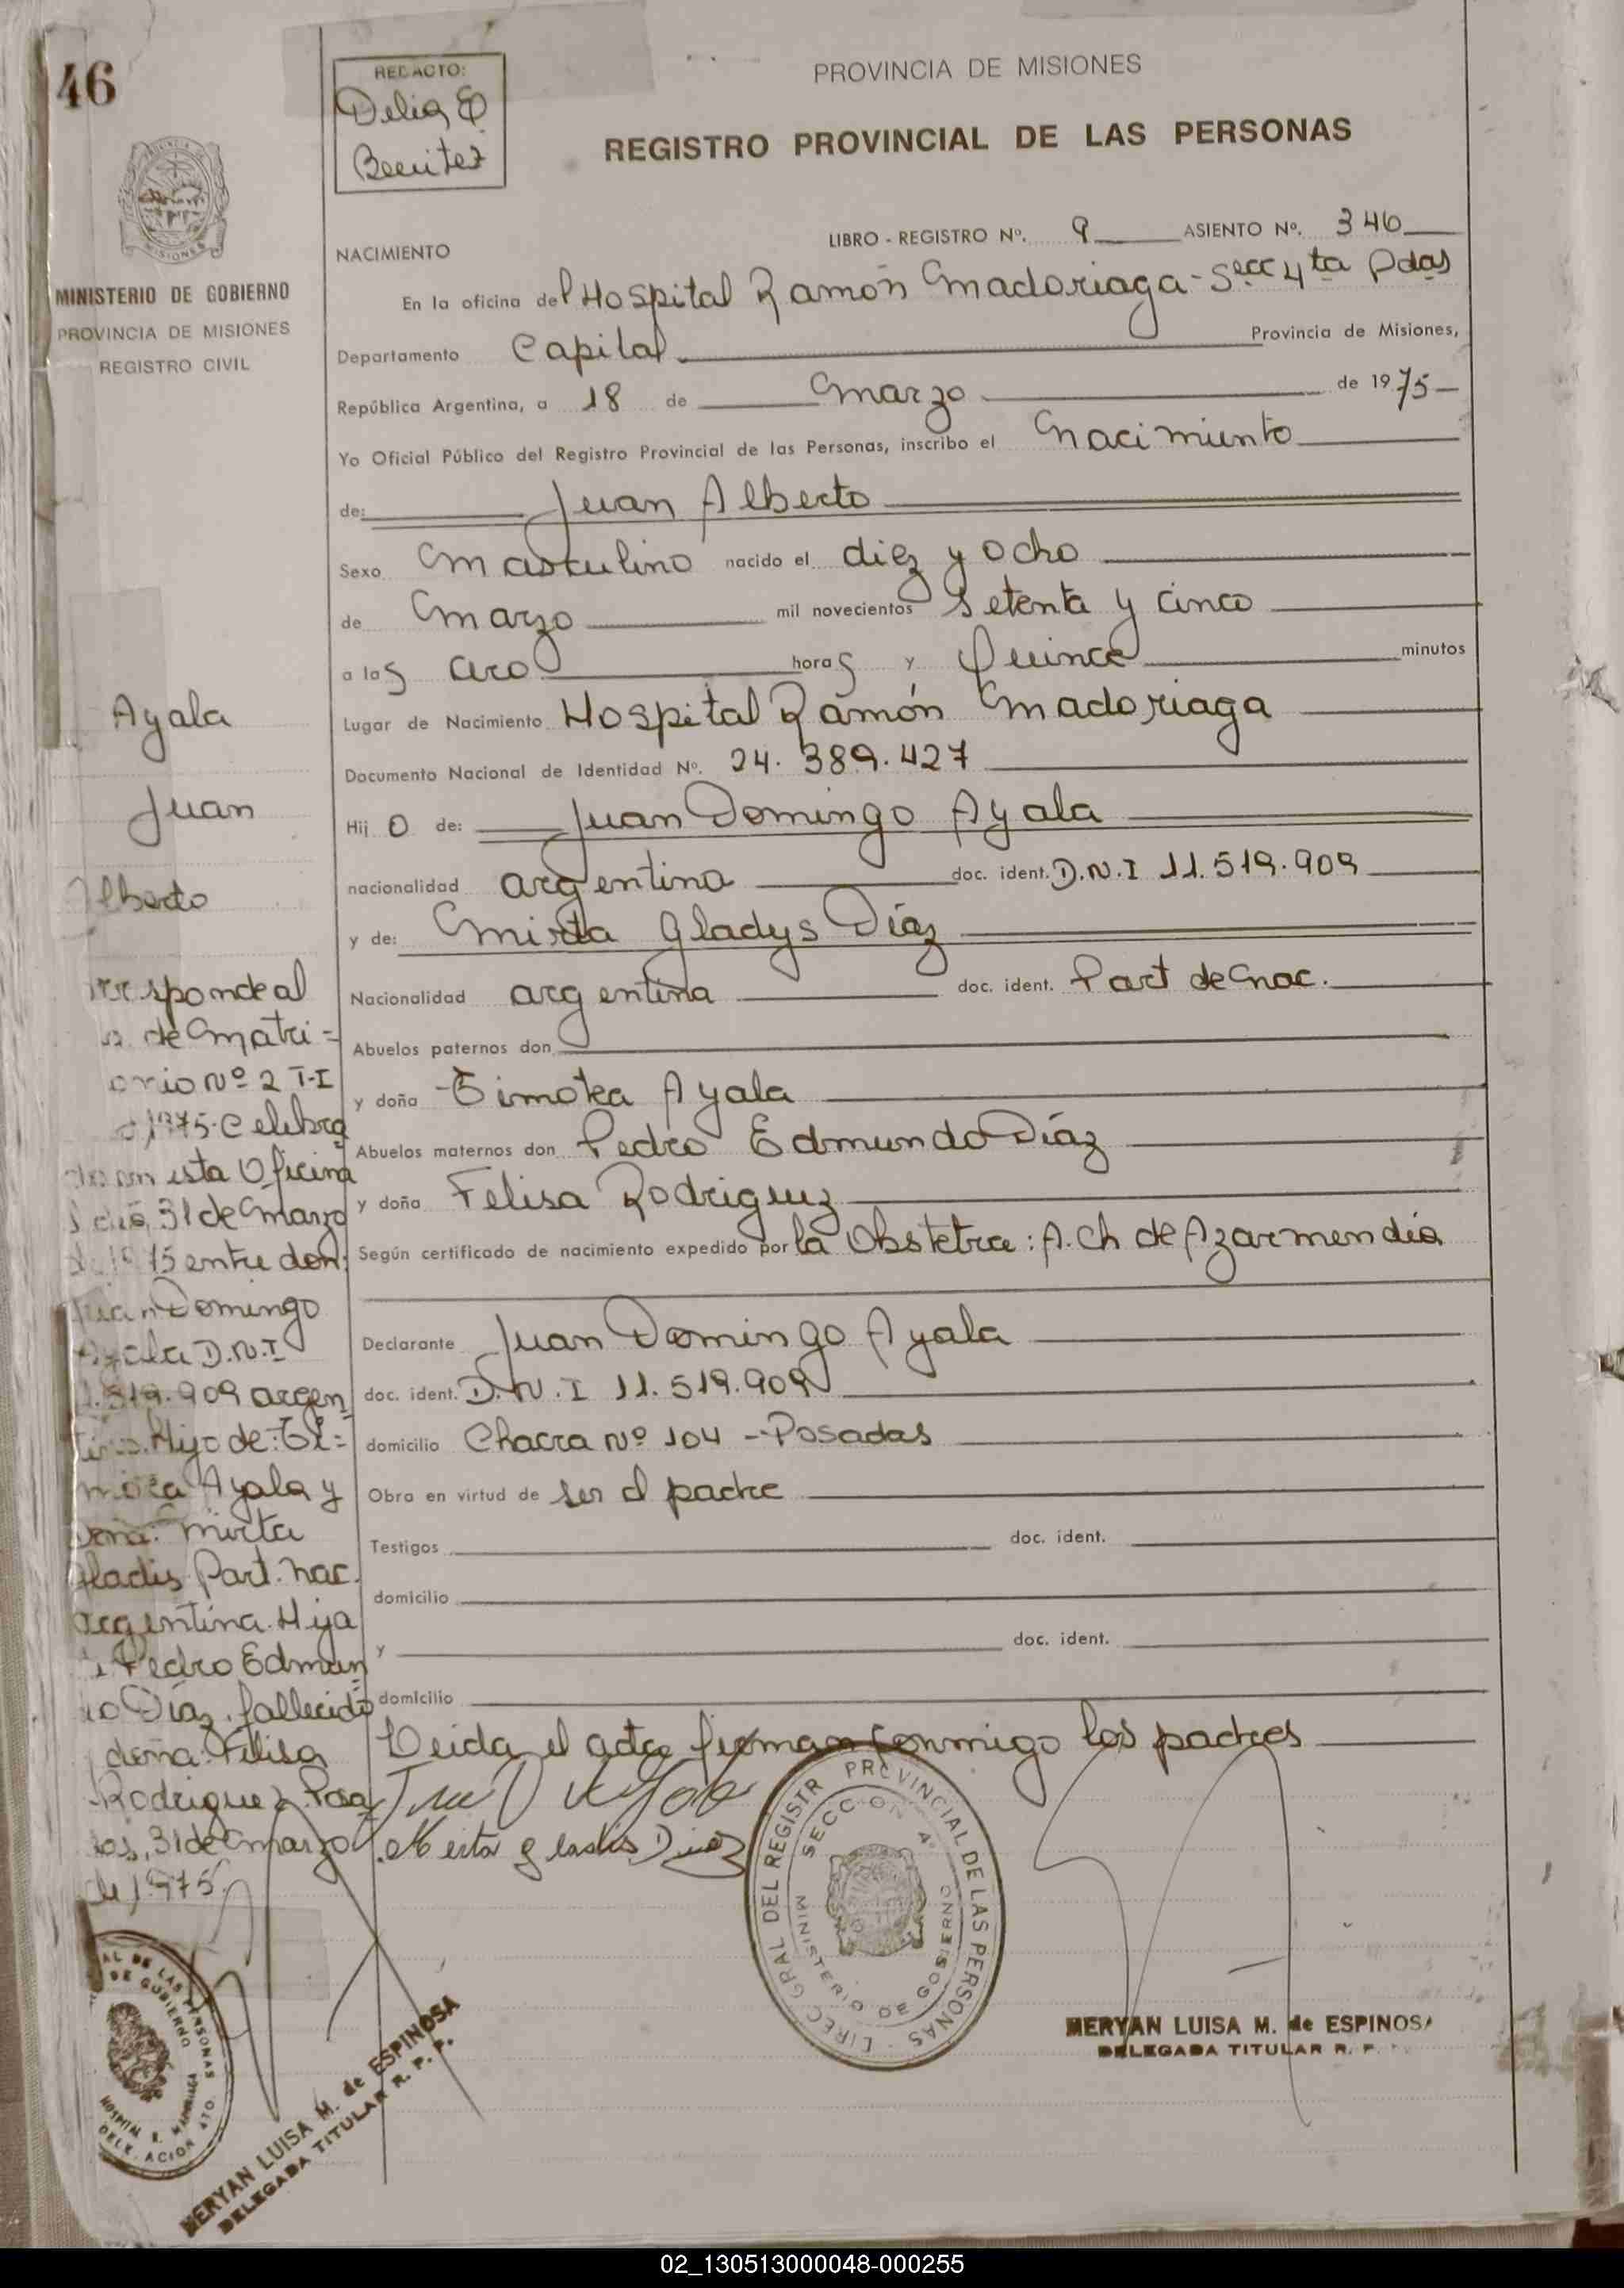 46
REDACTO:
Delia E
Benitez
PROVINCIA DE MISIONES
REGISTRO PROVINCIAL DE LAS PERSONAS
MINISTERIO DE GOBIERNO
PROVINCIA DE MISIONES
REGISTRO CIVIL
LIBRO - REGISTRO Nº. 9 ASIENTO Nº. 346
NACIMIENTO
En la oficina del Hospital Ramón Madoriaga - Secc 4ta Pdas
Departamento Capital Provincia de Misiones,
República Argentina, a 18 de Marzo de 1975
Yo Oficial Público del Registro Provincial de las Personas, inscribo el Nacimiento
de: Juan Alberto
Sexo Masculino nacido el diez y ocho
de Marzo mil novecientos Setenta y cinco
a las cero horas y Quince minutos
Lugar de Nacimiento Hospital Ramón Madoriaga
Documento Nacional de Identidad Nº. 24.389.427
Hijo de: Juan Domingo Ayala
nacionalidad argentina doc. ident. D.N.I 11.519.909
y de: Mirta Gladys Díaz
Nacionalidad argentina doc. ident. Part de Nac.
Abuelos paternos don
y doña Timotea Ayala
Abuelos maternos don Pedro Edmundo Díaz
y doña Felisa Rodriguez
Según certificado de nacimiento expedido por la Obstetra: A. Ch de Azarmendia
Declarante Juan Domingo Ayala
doc. ident. D.N.I 11.519.909
domicilio Chacra Nº 104 - Posadas
Obra en virtud de ser el padre
Testigos doc. ident.
domicilio
y doc. ident.
domicilio
Leida el acta firman conmigo los padres
Mirta gladis Diaz
Ayala
Juan
Alberto
rresponde al
de Matri=
onio Nº 2 T-I
1975-Celebra
do en esta Oficina
dia 31 de Marzo
de 1975 entre don:
Juan Domingo
Ayala D.N.I
.519.909 argen
tino. Hijo de: Ti=
motea Ayala y
Doña: Mirta
Gladis Part. nac.
argentina. Hija
Pedro Edmun
do Díaz, fallecido
doña: Felisa
Rodriguez Posa
das, 31 de Marzo
de 1975.
DIREC GRAL DEL REGISTR PROVINCIAL DE LAS PERSONAS
SECCION 4ª
MINISTERIO DE GOBIERNO
MERYAN LUISA M. de ESPINOSA
DELEGADA TITULAR R. P.
AL DE LAS PERSONAS
DE GOBIERNO
HOSPITAL R. MADARIAGA
DELEGACION 4TO.
MERYAN LUISA M. de ESPINOSA
DELEGADA TITULAR R. P. P.
02_130513000048-000255